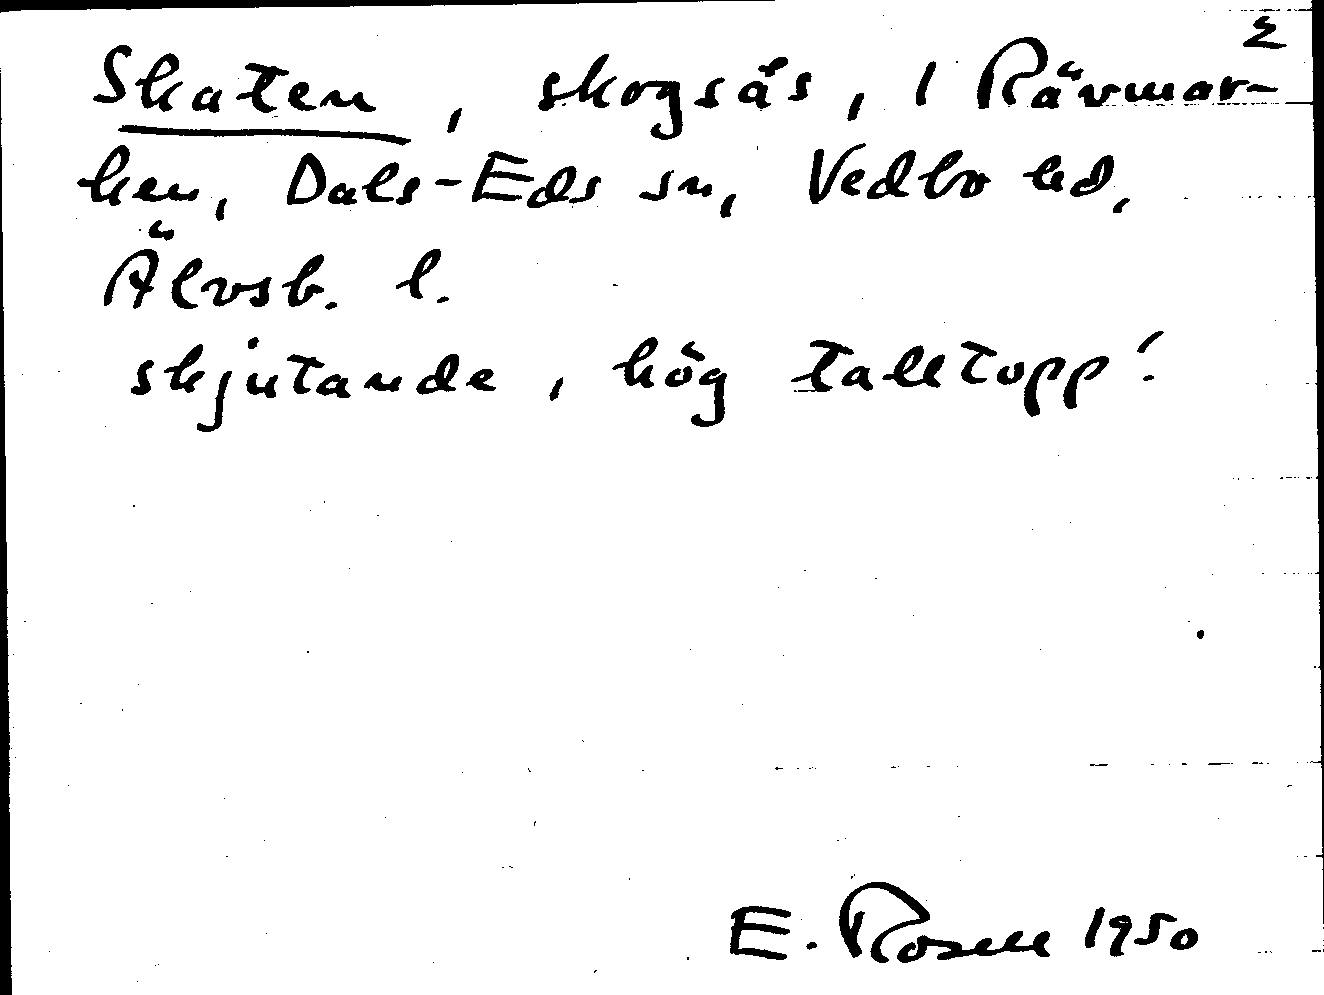 2
Skaten, skogsås, i Rävmar-
ken, Dals-Eds sn, Vedbo hd,
Älvsb. l.
skjutande, hög talltopp!
E. Rosell 1950